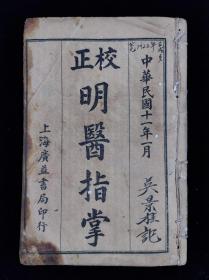 中華民國十一年一月
吳景桂記
校正
明醫指掌
上海廣益書局印行